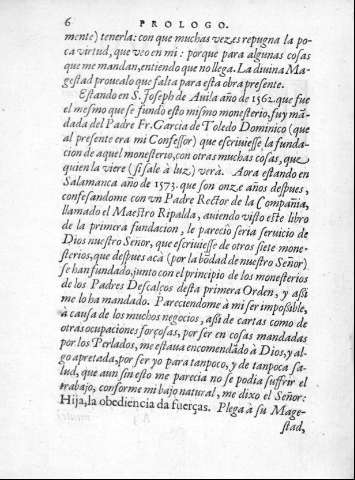 6 PROLOGO.
mente) tenerla: con que muchas vezes repugna la po-
ca virtud, que veo en mi: porque para algunas cosas
que me mandan, entiendo que no llega. La diuina Ma-
gestad prouea lo que falta para esta obra presente.
Estando en S. Ioseph de Auila año de 1562. que fue
el mesmo que se fundo esto mismo monesterio, fuy mã-
dada del Padre Fr. Garcia de Toledo Dominico (que
al presente era mi Confessor) que escriuiesse la funda-
cion de aquel monesterio, con otras muchas cosas, que
quien la viere (si sale à luz) verà. Aora estando en
Salamanca año de 1573. que son onze años despues,
confesandome con vn Padre Rector de la Compañia,
llamado el Maestro Ripalda, auiendo visto este libro
de la primera fundacion, le parecio seria seruicio de
Dios nuestro Señor, que escriuiesse de otros siete mone-
sterios, que despues acà (por la bõdad de nuestro Señor)
se han fundado, junto con el principio de los monesterios
de los Padres Descalços desta primera Orden, y assi
me lo ha mandado. Pareciendome à mi ser impossible,
à causa de los muchos negocios, assi de cartas como de
otras ocupaciones forçosas, por ser en cosas mandadas
por los Perlados, me estaua encomendãdo à Dios, y al-
go apretada, por ser yo para tan poco, y de tan poca sa-
lud, que aun sin esto me parecia no se podia suffrir el
trabajo, conforme mi bajo natural, me dixo el Señor:
Hija, la obediencia da fuerças. Plega à su Mage-
stad,